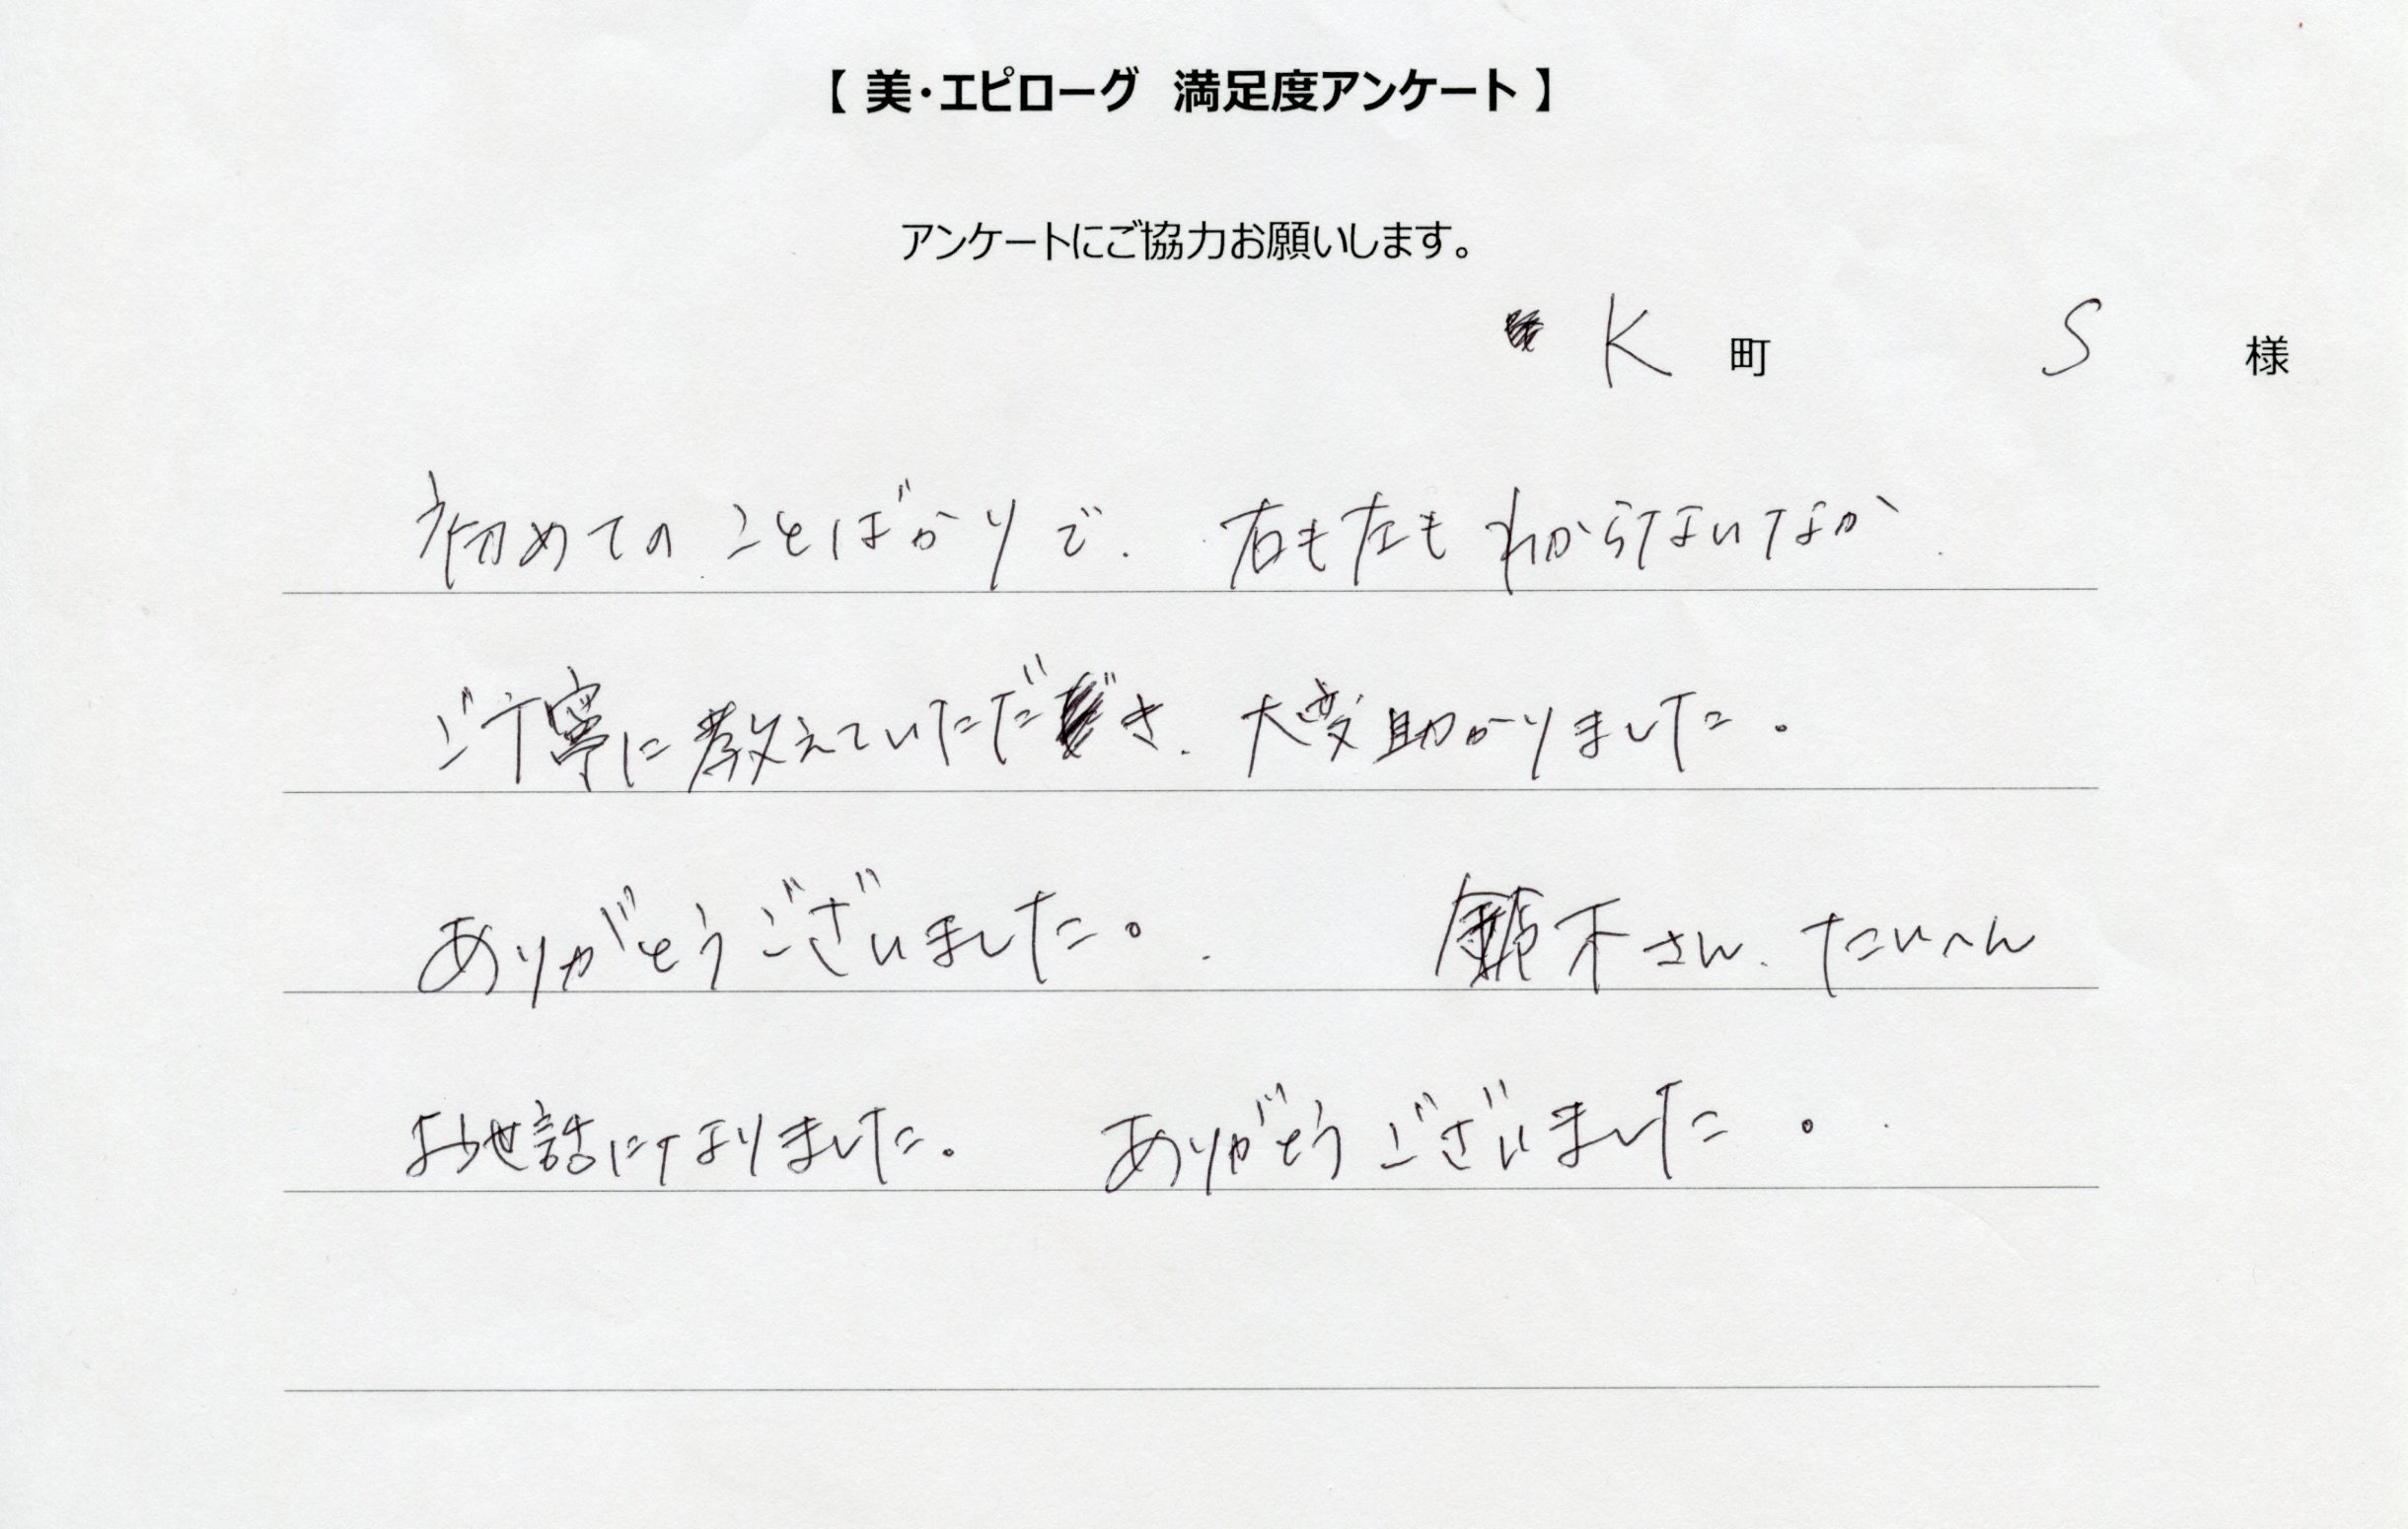 【 美・エピローグ 満足度アンケート 】
アンケートにご協力お願いします。
K 町 S 様
初めてのことばかりで、右も左もわからないなか、
ご丁寧に教えていただき、大変助かりました。
ありがとうございました。 鈴木さん、たいへん
お世話になりました。 ありがとうございました。